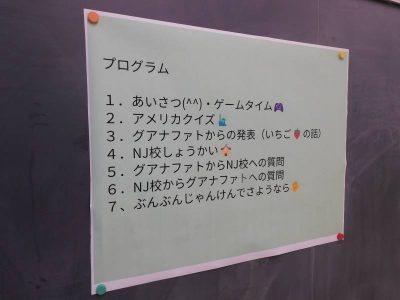 プログラム
１．あいさつ(^^)・ゲームタイム🎮
２．アメリカクイズ🗽
３．グアナファトからの発表（いちご🍓の話）
４．NJ校しょうかい🏫
５．グアナファトからNJ校への質問
６．NJ校からグアナファトへの質問
７、ぶんぶんじゃんけんでさようなら